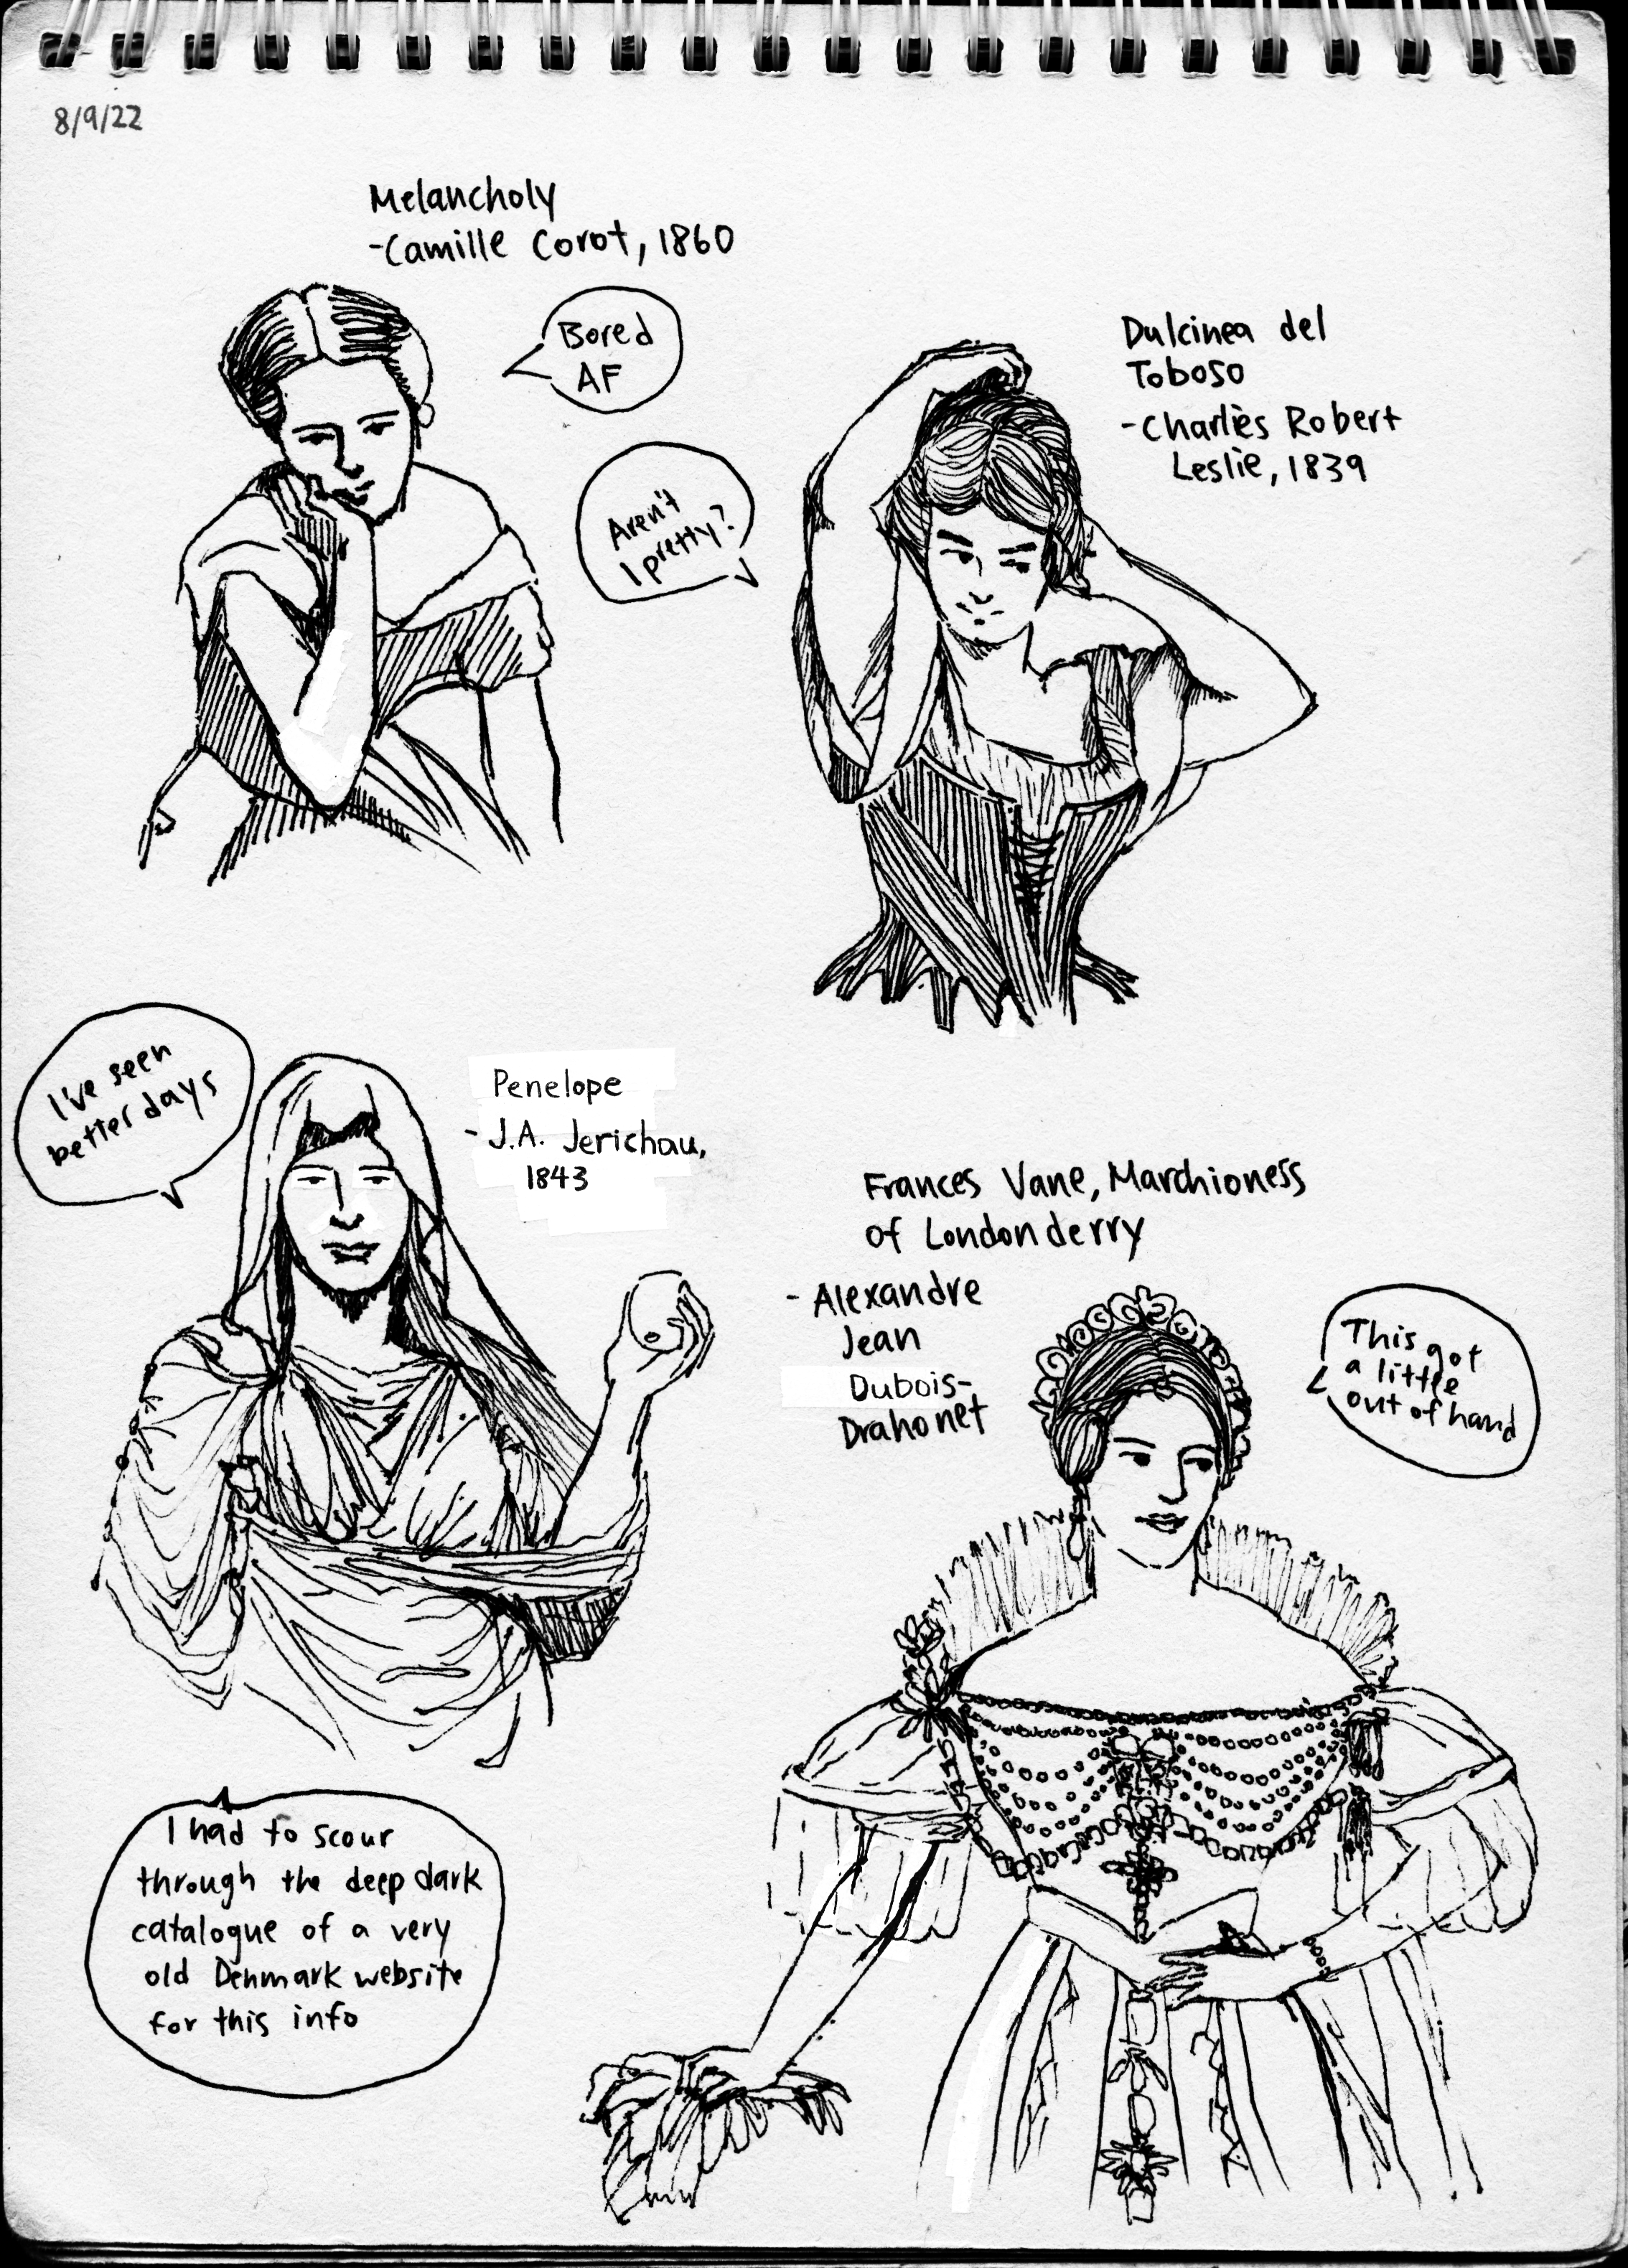 8/9/22
Melancholy
-Camille Corot, 1860
Bored
AF
Dulcinea del
Toboso
-Charles Robert
Leslie, 1839
Aren't
I pretty?
I've seen
better days
Penelope
- J.A. Jerichau,
1843
Frances Vane, Marchioness
of Londonderry
- Alexandre
Jean
Dubois-
Drahonet
This got
a little
out of hand
I had to scour
through the deep dark
catalogue of a very
old Denmark website
for this info